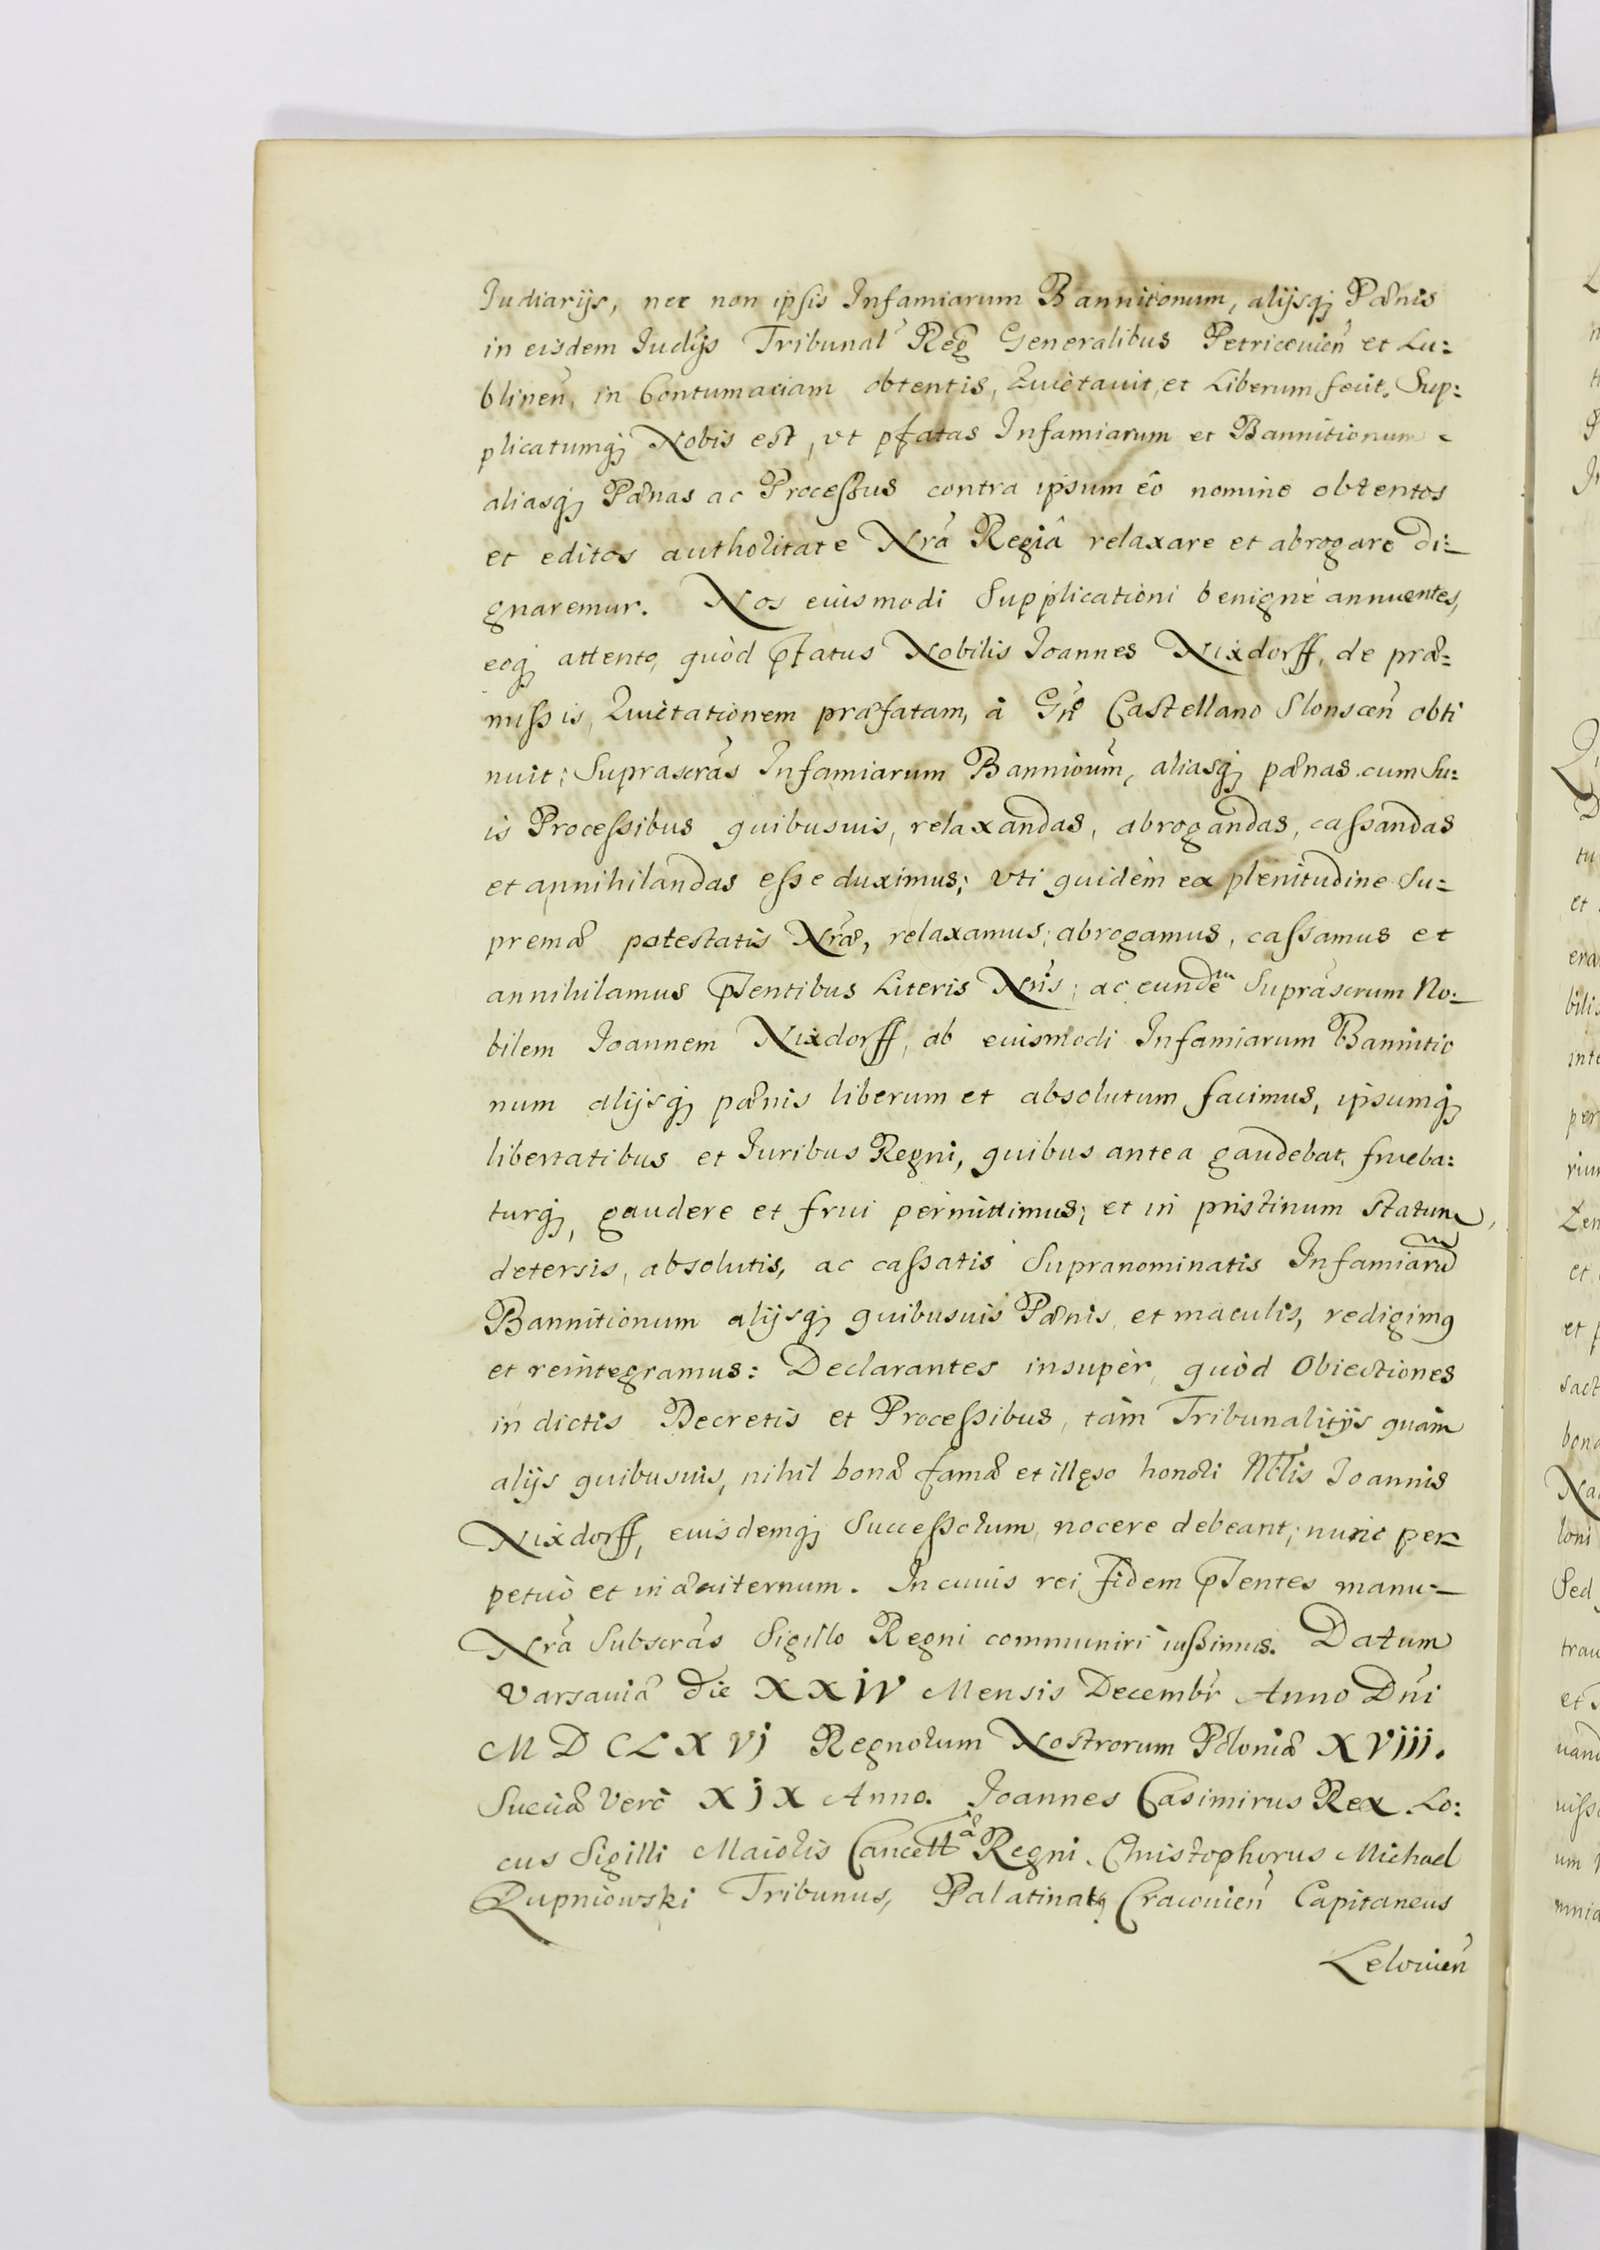 Iudiarijs, nec non ipsis Infamiarum Bannitionum, alijsq; Pænis
in eisdem Iudijs Tribunal Reg Generalibus Petricouień et Lu:
blineń, in Contumaciam obtentis, Quietauit, et Liberum fecit. Sup:
plicatumq; Nobis est, vt pfatas Infamiarum et Bannitionum
aliasq; Pænas ac Processus contra ipsum eô nomine obtentos
et editos authoritate Nrâ Regiâ relaxare et abrogare di:
gnaremur. Nos euismodi Supplicationi benignè annuentes,
eoq; attento, quòd pfatus Nobilis Ioannes Nixdorff, de præ:
missis, Quietationem præfatam, à Gń Castellano Slonsceń obti
nuit; Suprascrás Infamiarum Bannioum, aliasq; pænas cum Su:
is Processibus quibusuis, relaxandas, abrogandas, cassandas
et annihilandas esse duximus; vti quidèm ex plenitudine Su:
premæ potestatis Nræ, relaxamus, abrogamus, cassamus et
annihilamus pŝentibus Literis Nris; ac eundem Suprascrum No:
bilem Ioannem Nixdorff, ab euismodi Infamiarum Bannitio
num alijsq; pænis liberum et absolutum facimus, ipsumq;
libertatibus et Iuribus Regni, quibus antea gaudebat, frueba:
turq;, gaudere et frui permittimus; et in pristinum statum,
detersis, absolutis, ac cassatis Supranominatis Infamiarum
Bannitionum alijsq; quibusuis Pænis, et maculis, redigimꝰ
et reintegramus: Declarantes insupèr, quòd Obiectiones
in dictis Decretis et Processibus, tàm Tribunalitijs quàm
alijs quibusuis, nihil bonæ famæ et illęso honori Nblis Ioannis
Nixdorff, euisdemq; Successorum, nocere debeant, nunc per:
petuò et in æuiternum. In cuuis rei fidem pŝentes manu:
Nrâ Subscrás Sigillo Regni communiri iussimus. Datum
Varsauiæ die XXIV Mensis Decembr Anno Dni
MDCLXVI Regnorum Nostrorum Poloniæ XVIII.
Sueciæ Verò XIX Anno. Ioannes Casimirus Rex. Lo:
cus Sigilli Maioris Cancellæ Regni. Christophorus Michael
Rupniowski Tribunus, Palatinatꝰ Cracouień Capitaneus
Lelouień